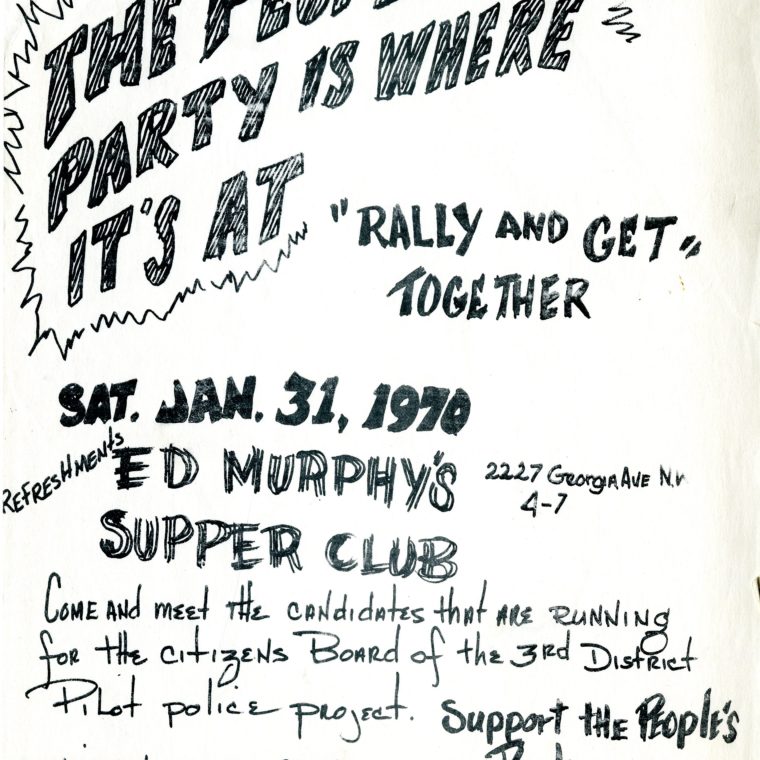 THE PEOPLE
PARTY IS WHERE
IT'S AT
"RALLY AND GET"
TOGETHER
SAT. JAN. 31, 1970
REFRESHMENTS
ED MURPHY'S
SUPPER CLUB
2227 Georgia Ave N.W
4-7
Come and meet the candidates that are running
for the citizens Board of the 3rd District
Pilot police project. Support the People's